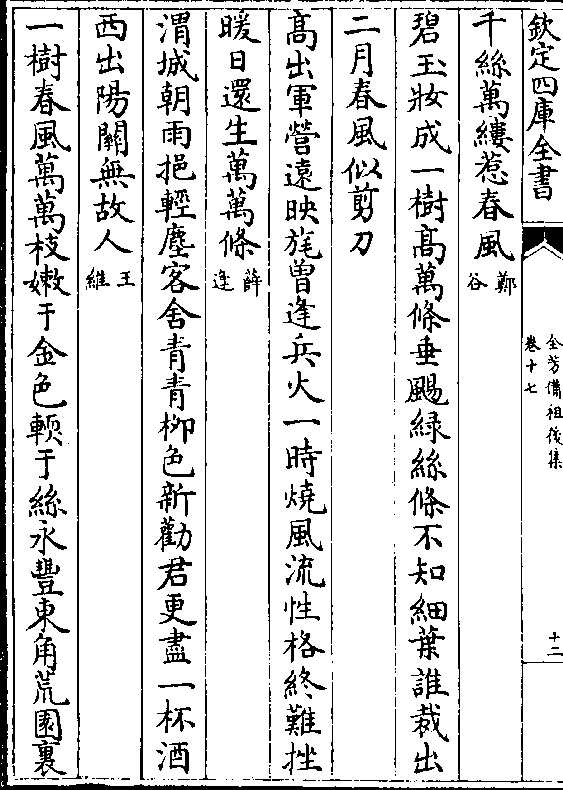 欽定四庫全書
全芳備祖後集
卷十七
十二
千絲萬縷惹春風鄭谷
碧玉妝成一樹髙萬條垂颺緑絲條不知細葉誰裁出
二月春風似剪刀
髙出軍營遠映旄曾逢兵火一時燒風流性格終難挫
暖日還生萬萬條薛逢
渭城朝雨挹輕塵客舍青青柳色新勸君更盡一杯酒
西出陽關無故人王維
一樹春風萬萬枝嫩于金色輭于絲永豐東角荒園裏